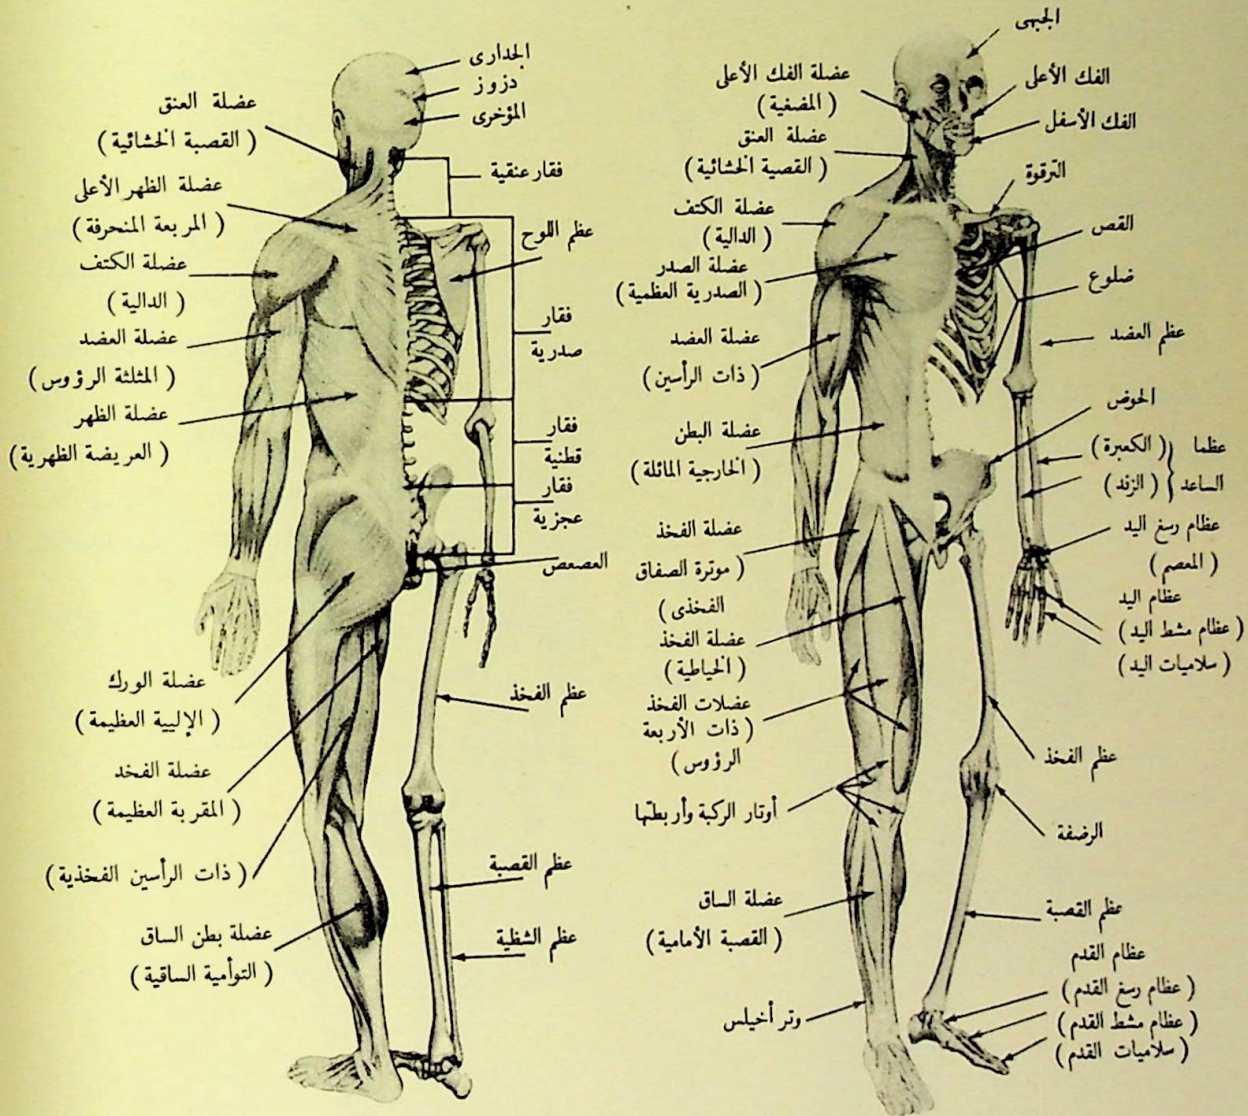 الجبهى
الفك الأعلى
الفك الأسفل
الترقوة
القص
ضلوع
عظم العضد
الحوض
عظما
الساعد
(الكعبرة)
(الزند)
عظام رسغ اليد
(المعصم)
عظام اليد
(عظام مشط اليد)
(سلاميات اليد)
عظم الفخذ
الرضفة
عظم القصبة
عظام القدم
(عظام رسغ القدم)
(عظام مشط القدم)
(سلاميات القدم)
عضلة الفك الأعلى
(المضغية)
عضلة العنق
(القصية الخشائية)
عضلة الكتف
(الدالية)
عضلة الصدر
(الصدرية العظمية)
عضلة العضد
(ذات الرأسين)
عضلة البطن
(الخارجية المائلة)
عضلة الفخذ
(موترة الصفاق
الفخذى)
عضلة الفخذ
(الخياطية)
عضلات الفخذ
(ذات الأربعة
الرؤوس)
أوتار الركبة وأربطتها
عضلة الساق
(القصبة الأمامية)
وتر أخيلس
الجدارى
دزوز
المؤخرى
فقار عنقية
عظم اللوح
فقار
صدرية
فقار
قطنية
فقار
عجزية
العصعص
عظم الفخذ
عظم القصبة
عظم الشظية
عضلة العنق
(القصبة الخشائية)
عضلة الظهر الأعلى
(المربعة المنحرفة)
عضلة الكتف
(الدالية)
عضلة العضد
(المثلثة الرؤوس)
عضلة الظهر
(العريضة الظهرية)
عضلة الورك
(الإليية العظيمة)
عضلة الفخد
(المقربة العظيمة)
(ذات الرأسين الفخذية)
عضلة بطن الساق
(التوأمية الساقية)